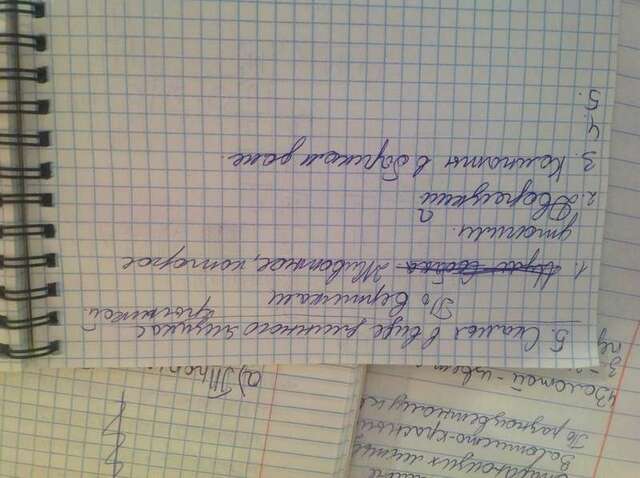 Золотисто-красный
По разноцветному
Золотой - цвет
а) Троп
5. Скамья в виде длинного ящика с
крышкой.
По вертикали
1. Животное, которое
утопили.
2. Дворецкий
3. Комнаты в барском доме.
4.
5.